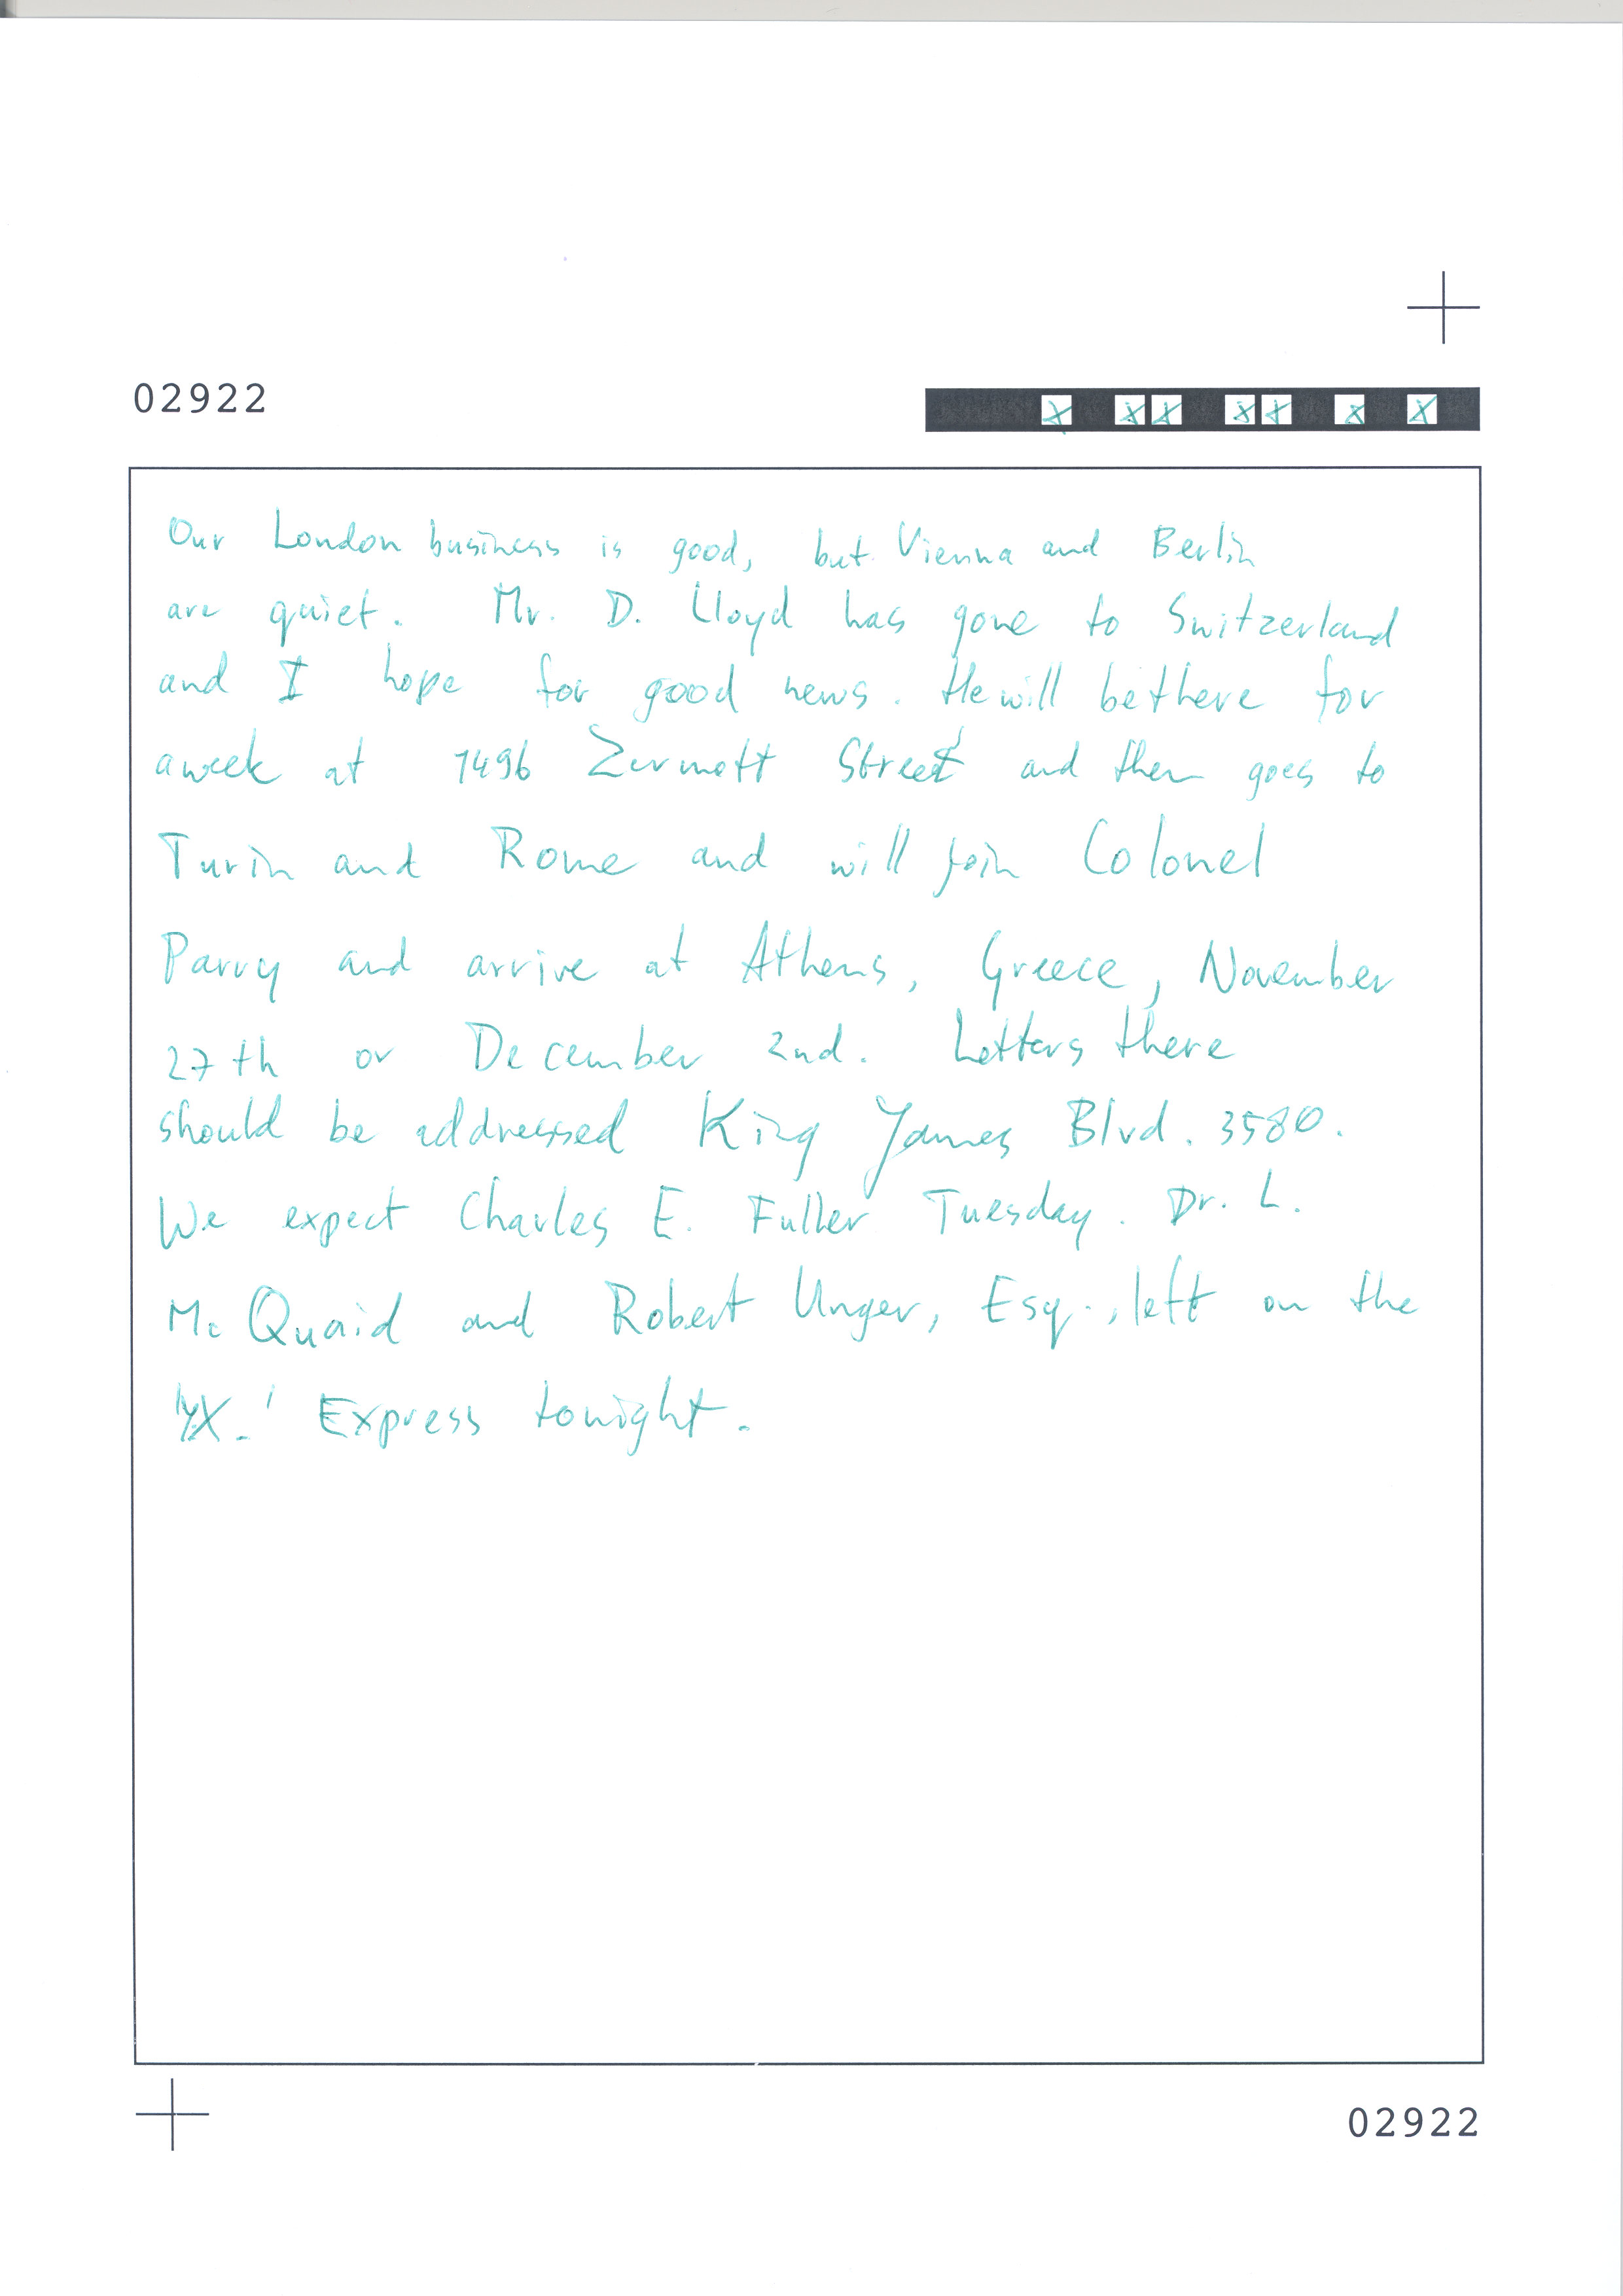 02922
Our London business is good, but Vienna and Berlin
are quiet. Mr. D. Lloyd has gone to Switzerland
and I hope for good news. He will be there for
a week at 1496 Zermott Street and then goes to
Turin and Rome and will join Colonel
Parry and arrive at Athens, Greece, November
27th or December 2nd. Letters there
should be addressed King James Blvd. 3580.
We expect Charles E. Fuller Tuesday. Dr. L.
Mc Quaid and Robert Unger, Esq., left on the
"YX." Express tonight.
02922